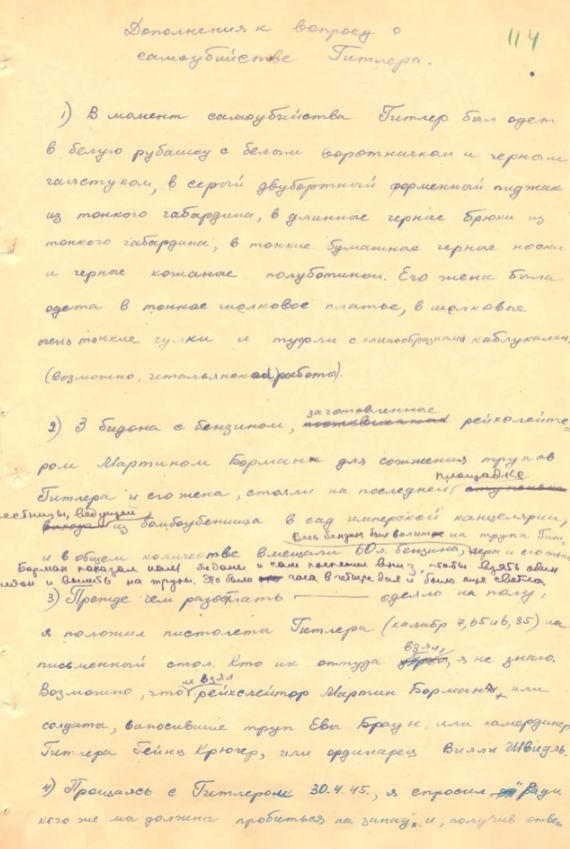 114
Дополнения к вопросу о
самоубийстве Гитлера.
1) В момент самоубийства Гитлер был одет
в белую рубашку с белым воротничком и черным
галстуком, в серый двубортный форменный пиджак
из тонкого габардина, в длинные черные брюки из
тонкого габардина, в тонкие бумажные черные носки
и черные кожаные полуботинки. Его жена была
одета в тонкое шелковое платье, в шелковые
очень тонкие чулки и туфли с клинообразными каблуками
(возможно, итальянской работы).
2) 3 бидона с бензином, заготовленные рейхслейте-
ром Мартином Борман для сожжения трупов
Гитлера и его жена, стояли на последней площадке
лестницы, ведущей из бомбоубежища в сад имперской канцелярии,
и в общем количестве вмещали 60 л. бензина. Весь бензин был вылит на трупа Гит-
лера и его жены
Борман показал нам бидоны и сам поспешил вниз, чтобы взять один
бидон и вылить на трупы. Это было часа в четыре дня и было еще светло.
3) Прежде чем разостлать одеяло на полу,
я положил пистолеты Гитлера (калибр 7,65 и 6,35) на
письменный стол. Кто их оттуда взял, я не знаю.
Возможно, что их взял рейхслейтор Мартин Борман, или
солдаты, выносившие труп Евы Браун, или камердинер
Гитлера Гейнц Крюгер, или ординарец Вилли Швидль.
4) Прощаясь с Гитлером 30.4.45., я спросил "Ради
кого же мы должны пробиться на запад", и, получив ответ